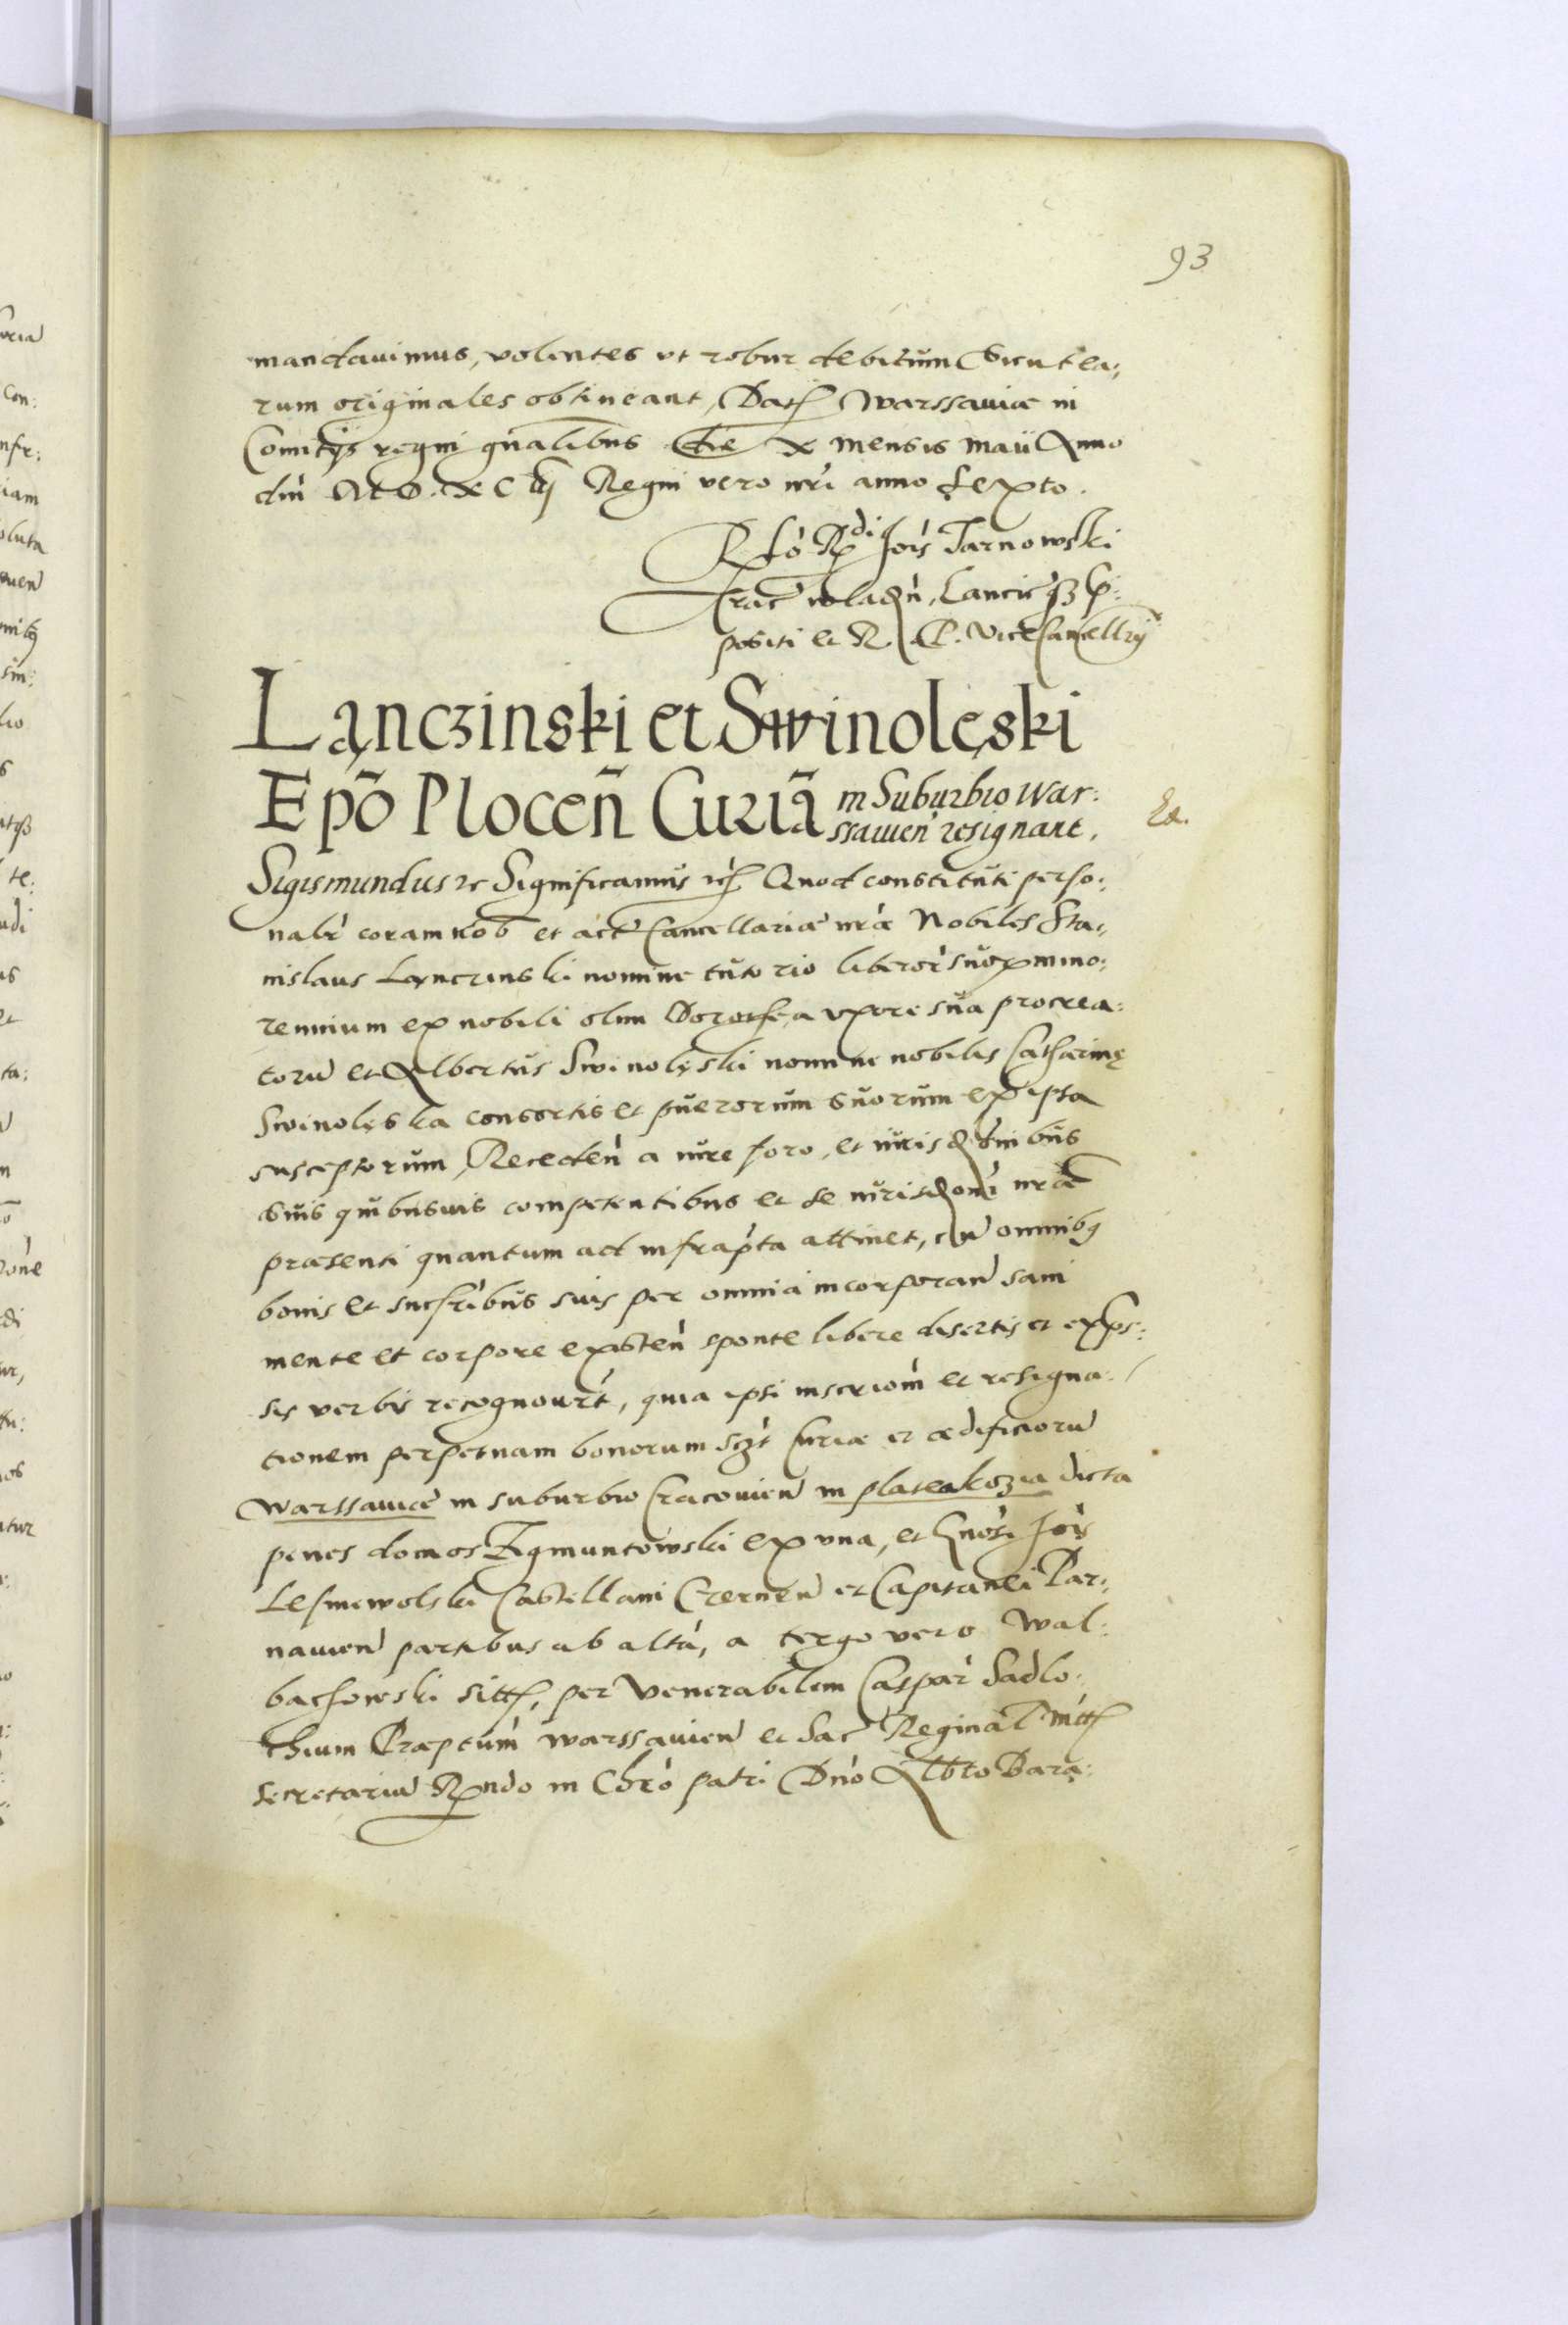 93
mandauimus, volentes vt robur debitum sicut ea:
rum originales obtineant, Dat Warssauiæ in
Comitijs regni gnalibus die X mensis maii Anno
dni M D XC iij Regni vero nri anno sexto.
Rło R di Jois Tarnowski
Crac wladn, Lancicz P:
positi et R. P. Vicecancellrij
Ląnczinski et Swinolęski
Epo Plocen Curia in Suburbio War:
ssauien resignant.
Ea.
Sigismundus etc Significamus etc Quod constituti perso:
nalr coram nob et act Cancellariæ nræ Nobiles Sta:
nislaus Lanczinski nomine tutorio liberor suor mino:
rennium ex nobili olim Dorothea vxore sua procrea:
toru et Albertus Swinolęski nomine nobilis Catharinę
Swinolęska consortis et puerorum suorum ex ipsa
susceptorum, Receden a iure foro, et iurisdnibus
suis quibusuis competentibus et se iurisdoni nræ
præsenti quantum ad infrapta attinet, cu omnibq
bonis et sucsribus suis per omnia incorporan sani
mente et corpore existen sponte libere disertis et expres:
sis verbis recognouert, quia ipsi inscriom et resigna:
tionem perpetuam bonorum sczt Curiæ et ædificioru
Warssauiæ in suburbio Cracouien in platea kozia dicta
penes domos Zigmuntowski ex vna, et Gnosi Jois
Lesniewolski Castellani Czernen et Capitanei Par:
nauien partibus ab alta, a tergo vero Wal:
bachowski sitt, per Venerabilem Caspar Sadlo:
chium Præptum Warssauien et Sac Reginal Mtt
secretariu Rndo in Chro patri Dno Albto Bara: